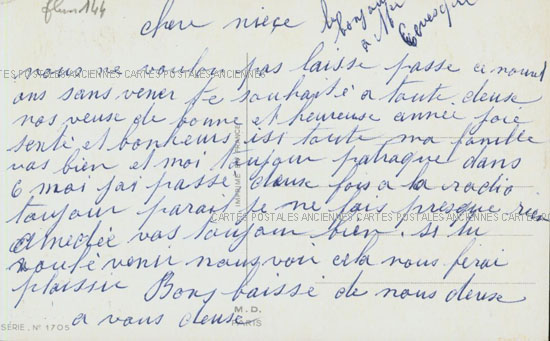 chere nièce
bonjour
a Mr
Levesque
nous ne voulon pas laisse passe ce nouvel
ans sans venir te souhaité a toute deuse
nos veuse de bonne et heureuse année joie
senté et bonheurs isi toute ma famille
vas bien et moi toujour patraque dans
6 moi jai passe deuse fois a la radio
toujour pararei je ne fais presque rien
aimedée vas toujour bien. si tu
voulé venir nous voir cela nous ferai
plaisir Bons baisse de nous deuse
a vous deuse
CARTES POSTALES ANCIENNES CARTES POSTALES ANCIENNES CARTES POSTALES ANCIENNES
CARTES POSTALES ANCIENNES CARTES POSTALES ANCIENNES CARTES POSTALES ANCIENNES
IMPRIMÉ EN FRANCE
M. D.
PARIS
SÉRIE, N° 1705